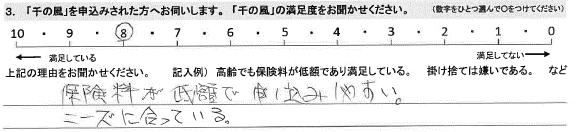 3. 「千の風」を申込みされた方へお伺いします。「千の風」の満足度をお聞かせください。 (数字をひとつ選んで〇をつけてください)
10 ・ 9 ・ 8 ・ 7 ・ 6 ・ 5 ・ 4 ・ 3 ・ 2 ・ 1 ・ 0
満足している 満足してない
上記の理由をお聞かせください。 記入例）高齢でも保険料が低額であり満足している。 掛け捨ては嫌いである。 など
保険料が低額で申し込みやすい。
ニーズに合っている。